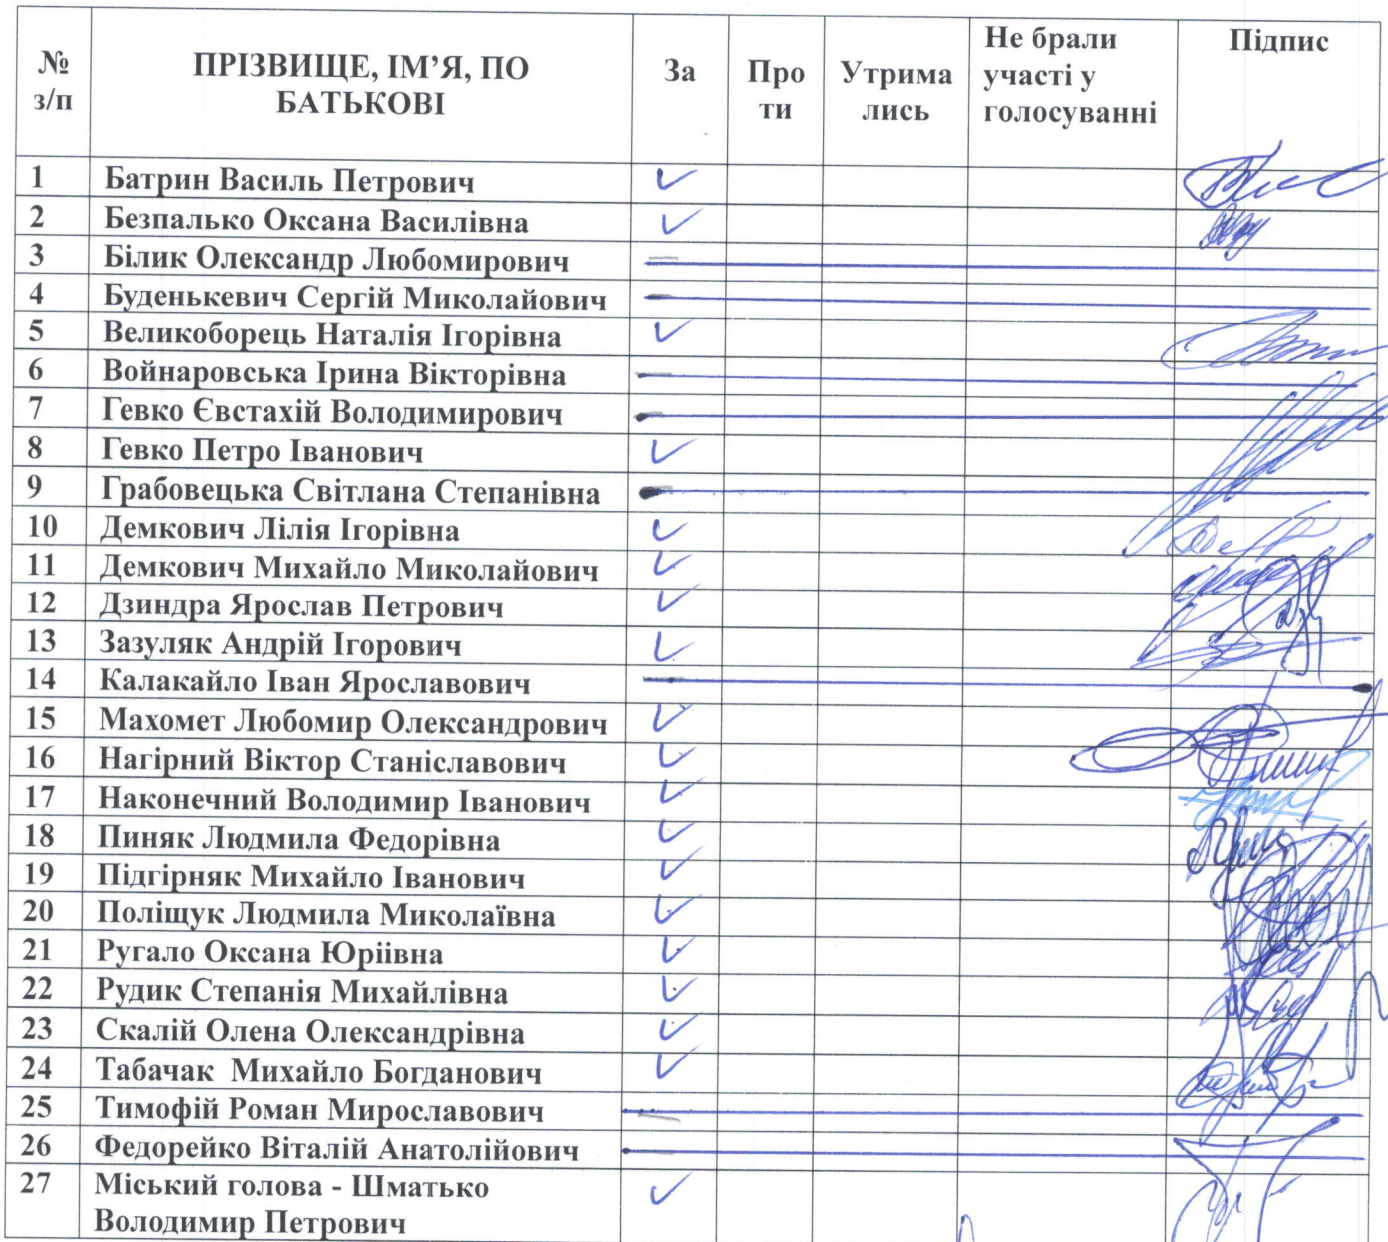 № з/п ПРІЗВИЩЕ, ІМ’Я, ПО БАТЬКОВІ За Про ти Утрима лись Не брали участі у голосуванні Підпис
1 Батрин Василь Петрович
2 Безпалько Оксана Василівна
3 Білик Олександр Любомирович
4 Буденькевич Сергій Миколайович
5 Великоборець Наталія Ігорівна
6 Войнаровська Ірина Вікторівна
7 Гевко Євстахій Володимирович
8 Гевко Петро Іванович
9 Грабовецька Світлана Степанівна
10 Демкович Лілія Ігорівна
11 Демкович Михайло Миколайович
12 Дзиндра Ярослав Петрович
13 Зазуляк Андрій Ігорович
14 Калакайло Іван Ярославович
15 Махомет Любомир Олександрович
16 Нагірний Віктор Станіславович
17 Наконечний Володимир Іванович
18 Пиняк Людмила Федорівна
19 Підгірняк Михайло Іванович
20 Поліщук Людмила Миколаївна
21 Ругало Оксана Юріівна
22 Рудик Степанія Михайлівна
23 Скалій Олена Олександрівна
24 Табачак Михайло Богданович
25 Тимофій Роман Мирославович
26 Федорейко Віталій Анатолійович
27 Міський голова - Шматько
Володимир Петрович